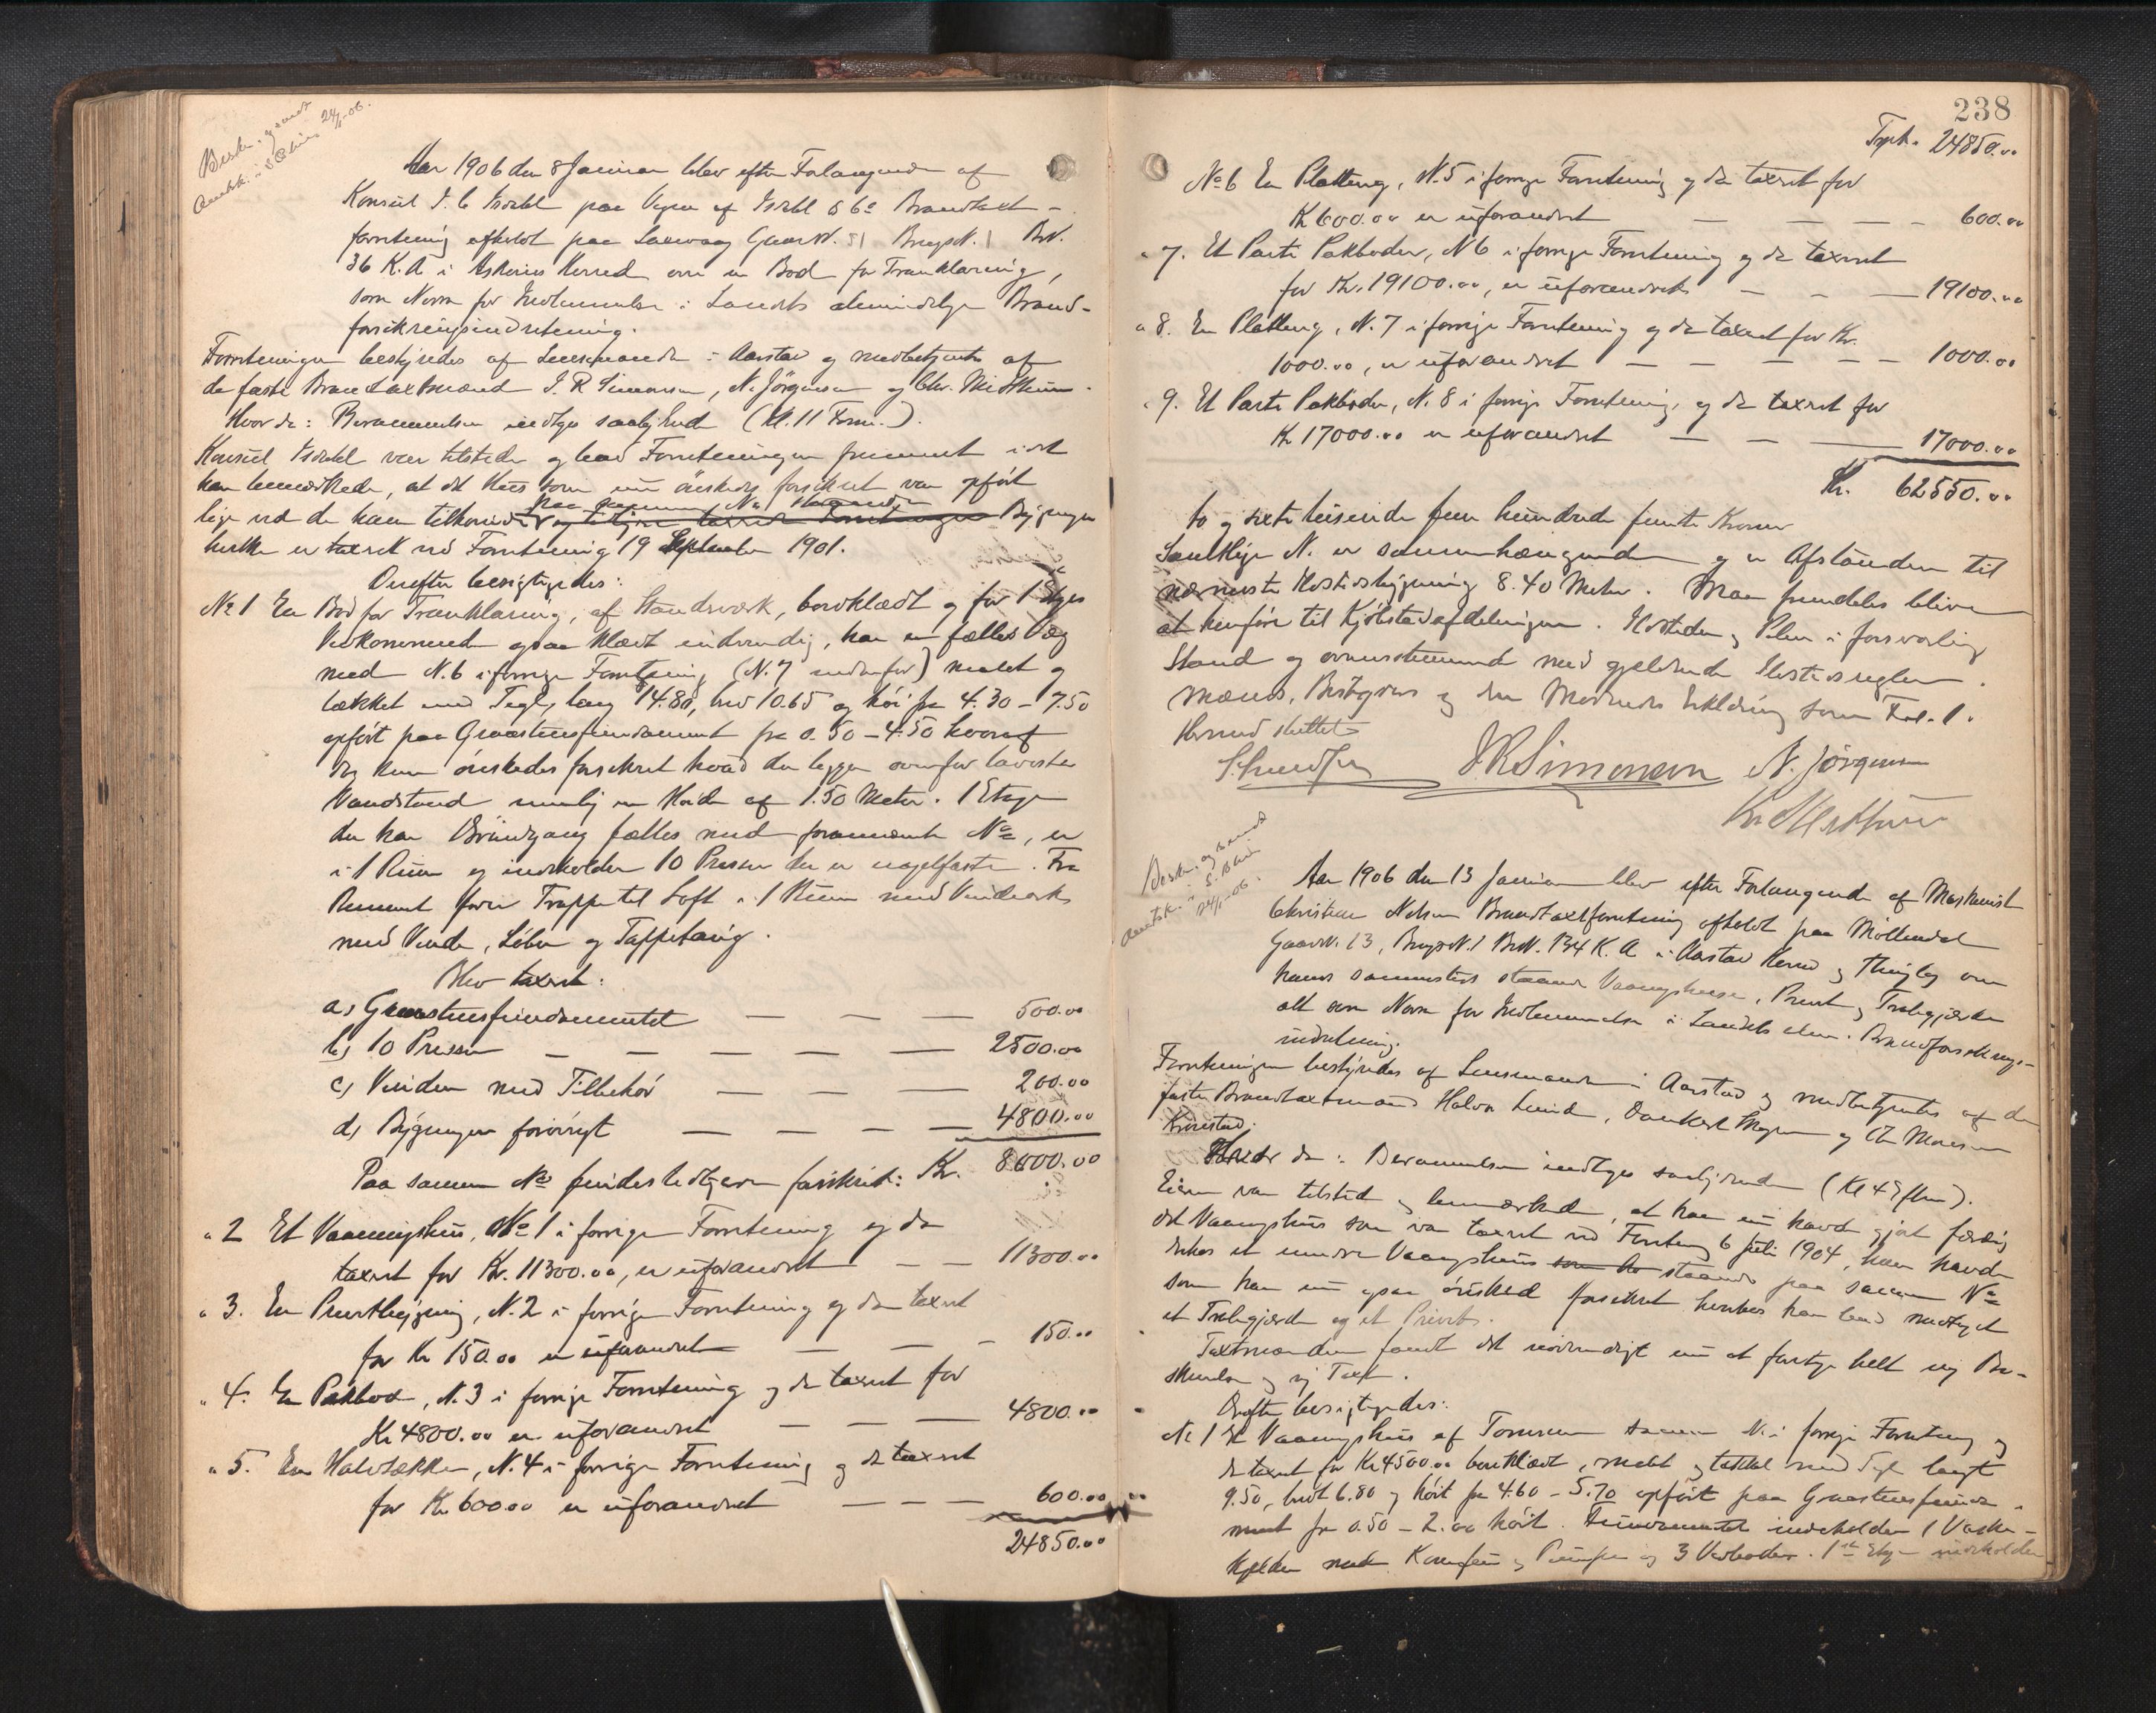 Beskr. og
Amtsk. i S. B. hus 24/1-06.
Aar 1906 den 8 Januar blev efter Forlangende af
Konsul I. C. Isdahl paa Vegne af Isdahl & Co Brandtaxt-
forretning afholdt paa Laxevaag Gaards N. 51 Brugs N. 1 Br. N.
36 K. A i Askøens Herred over en Bod for Tranklaring,
som Norm for Indlemmelse i Landets almindelige Brand-
forsikringsindretning.
Forretningen bestyredes af Lensmanden i Aarstad og medbetjentes af
de faste Brandtaxtmænd J. R. Simonsen, N. Jørgensen og Chr. Midtthun.
Hvorda: Berammelsen indtoges saalydende (Kl. 11 Form.).
Konsul Isdahl var tilstede og bad Forretningen fremmet idet
han bemærkede, at det Hus som nu ønskedes forsikret var opført
paa samme No 1 staaende
lige ved de ham tilhørende Bygninger
hvilke er taxeret ved Forretning 19 September 1901.
Derefter besigtigedes:
No 1 En Bod for Tranklaring, af Standsværk, bordklædt og for 1 Etages
Vedkommende ogsaa klædt indvendig, har en fælles Væg
med N. 6 i forrige Forretning (N. 7 nedenfor) malet og
tækket med Tegl, lang 14.80, bred 10.65 og høi fra 4.30 - 7.50
opført paa Graastensfundament fra 0.50 - 4.50 hvoraf
dog kun ønskedes forsikret hvad der ligger ovenfor laveste
Vandstand nemlig en Høide af 1.50 Meter. 1 Etage
der har Indgang fælles med fornævnte No, er
i 1 Rum og indeholder 10 Presser der er nagelfaste. Fra
Rummet fører Trappe til Loft i 1 Rum med Vindeark
med Vinde, Løber og Tappetaug.
Blev taxeret:
a) Graastensfundamentet — — — 500.00
b) 10 Presser — — — — — 2500.00
c) Vinden med Tilbehør — — — 200.00
d) Bygningen forøvrigt — — — — 4800.00
Paa samme No findes tidligere forsikret: Kr. 8000.00
" 2 Et Vaaningshus, No 1 i forrige Forretning og da
taxeret for Kr. 11300.00, er uforandret — — 11300.00
" 3. En Privetbygning, N. 2 i forrige Forretning og da taxeret
for Kr 150.00 er uforandret — — — 150.00
" 4. En Pakbod, N. 3 i forrige Forretning og da taxeret for
Kr 4800.00 er uforandret — — — 4800.00
" 5. En Halvtække, N. 4 i forrige Forretning og da taxeret
for Kr. 600.00 er uforandret — — — 600.00
24850.00
238
Trpt. 24850.00
No 6 En Platting, N. 5 i forrige Forretning og da taxeret for
Kr 600.00 er uforandret — — — — 600.00
" 7. Et Parti Pakboder, N 6 i forrige Forretning og da taxeret
for Kr. 19100.00, er uforandret — — — 19100.00
" 8. En Platting, N. 7 i forrige Forretning og da taxeret for Kr.
1000.00, er uforandret — — — — — 1000.00
" 9. Et Parti Pakboder, N. 8 i forrige Forretning, og da taxeret for
Kr 17000.00 er uforandret — — — 17000.00
Kr. 62550.00
to og sixti tusinde fem hundrede femti Kroner
Samtlige N. er sammenhængende og er Afstanden til
nærmeste Ildstedsbygning 8.40 Meter. Maa fremdeles blive
at henføre til Kjøbstadafdelingen. Ildsteder og Piber i forsvarlig
Stand og overensstemmende med gjældende Ildstedsregler.
Mænds, Bestyrers og den Mødendes Erklæring som Fol. 1.
Hermed sluttet
J R Simonsen N. Jørgensen
Chr Midtthun
Beskr. og
Amtsk. i S. B. hus
24/1-06.
Aar 1906 den 13 Januar blev efter Forlangende af Maskinist
Christian Nilsen Brandtaxtforretning afholdt paa Møllendal
Gaards N. 13, Brugs N. 1 Br. N. 134 K. A. i Aarstad Herred og Thinglag over
hans sammesteds staaende Vaaningshuse, Privet og Træbygjerde
alt som Norm for Indlemmelse i Landets alm. Brandforsikrings-
indretning.
Forretningen bestyredes af Lensmanden i Aarstad og medbetjentes af de
faste Brandtaxtmænd Halvor Lund, Dankert Meyer og Chr Monsen
Kronstad.
Hvorda: Berammelsen indtoges saalydende (Kl 4 Efterm).
Eieren var tilstede og bemærkede, at han nu havde gjort færdig
det Vaaningshus som var taxeret ved Forretning 6 Juli 1904, han havde
desuden et mindre Vaaningshus staaende paa samme No
som han nu ogsaa ønsked forsikret hvorhos han bad medtaget
et Træbygjerde og et Privet.
Taxtmændene fandt det nødvendigt nu at foretage helt ny Be-
skrivelse og ny Taxt.
Derefter besigtigedes:
No 1 Et Vaaningshus af Tømmer samme N. i forrige Forretning og
da taxeret for Kr 4500.00 bordklædt, malt og tækket med Tegl langt
9.50, bredt 6.80 og høit fra 4.60 - 5.70 opført paa Graastensfunda-
ment fra 0.50 - 2.00 høit. Fundamentet indeholder 1 Vaske-
kjelder med Komfur og Pumpe og 3 Vedboder. 1ste Etage indeholder